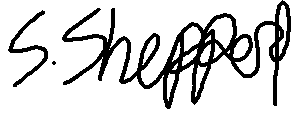 S. Shepperd